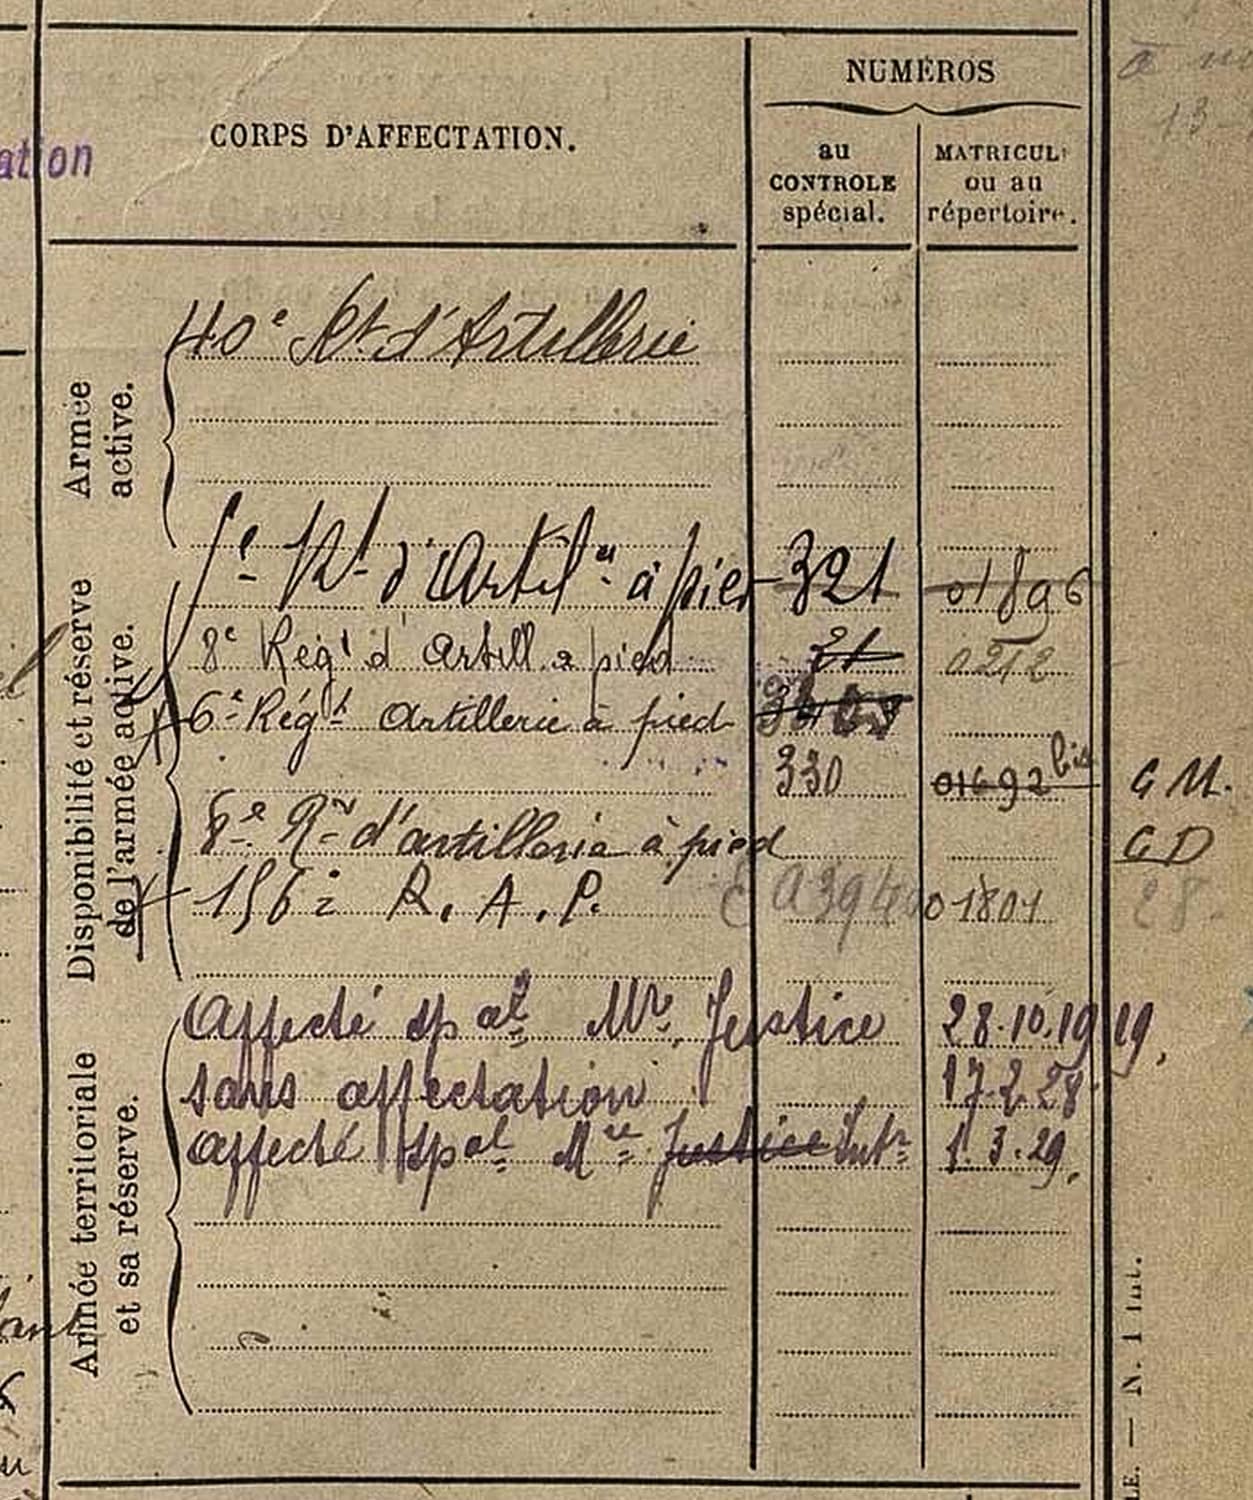 ation
CORPS D'AFFECTATION.
NUMÉROS
au
CONTROLE
spécial.
MATRICUL
ou au
répertoire.
13
Armée
active.
40e Rt d'Artillerie
Disponibilité et réserve
de l'armée active.
Rt d'Artil à pied 321 01896
8e Régt d'Artill à pied 21 0212
6e Régt Artillerie à pied
330 01692 bis G M.
8e Rt d'artillerie à pied G D
156e R. A. P. 01801 28.
Armée territoriale
et sa réserve.
Affecté spal Mre Justice 28.10.1919.
sans affectation 17.2.28.
affecté spal Mre Justice Intr 1.3.29.